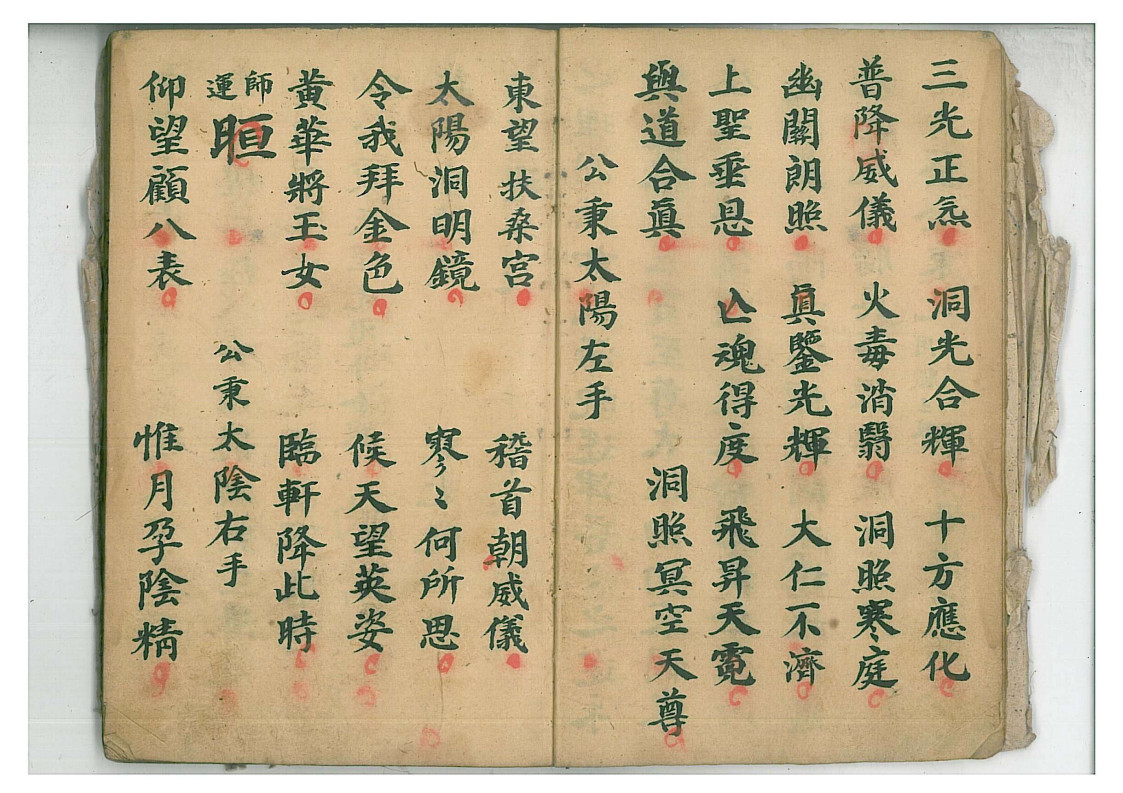 三光正炁 洞光合輝 十方應化
普降威儀 火毒消翳 洞照寒庭
幽關朗照 真鑒光輝 大仁不濟
上聖垂恩 亾魂得度 飛昇天霓
與道合真 洞照冥空天尊
公秉太陽左手
東望扶桑宮 稽首朝威儀
太陽洞明鏡 寥〻何所思
令我拜金色 候天望英姿
黃華將玉女 臨軒降此時
師運 晅 公秉太陰右手
仰望顧八表 惟月孕陰精